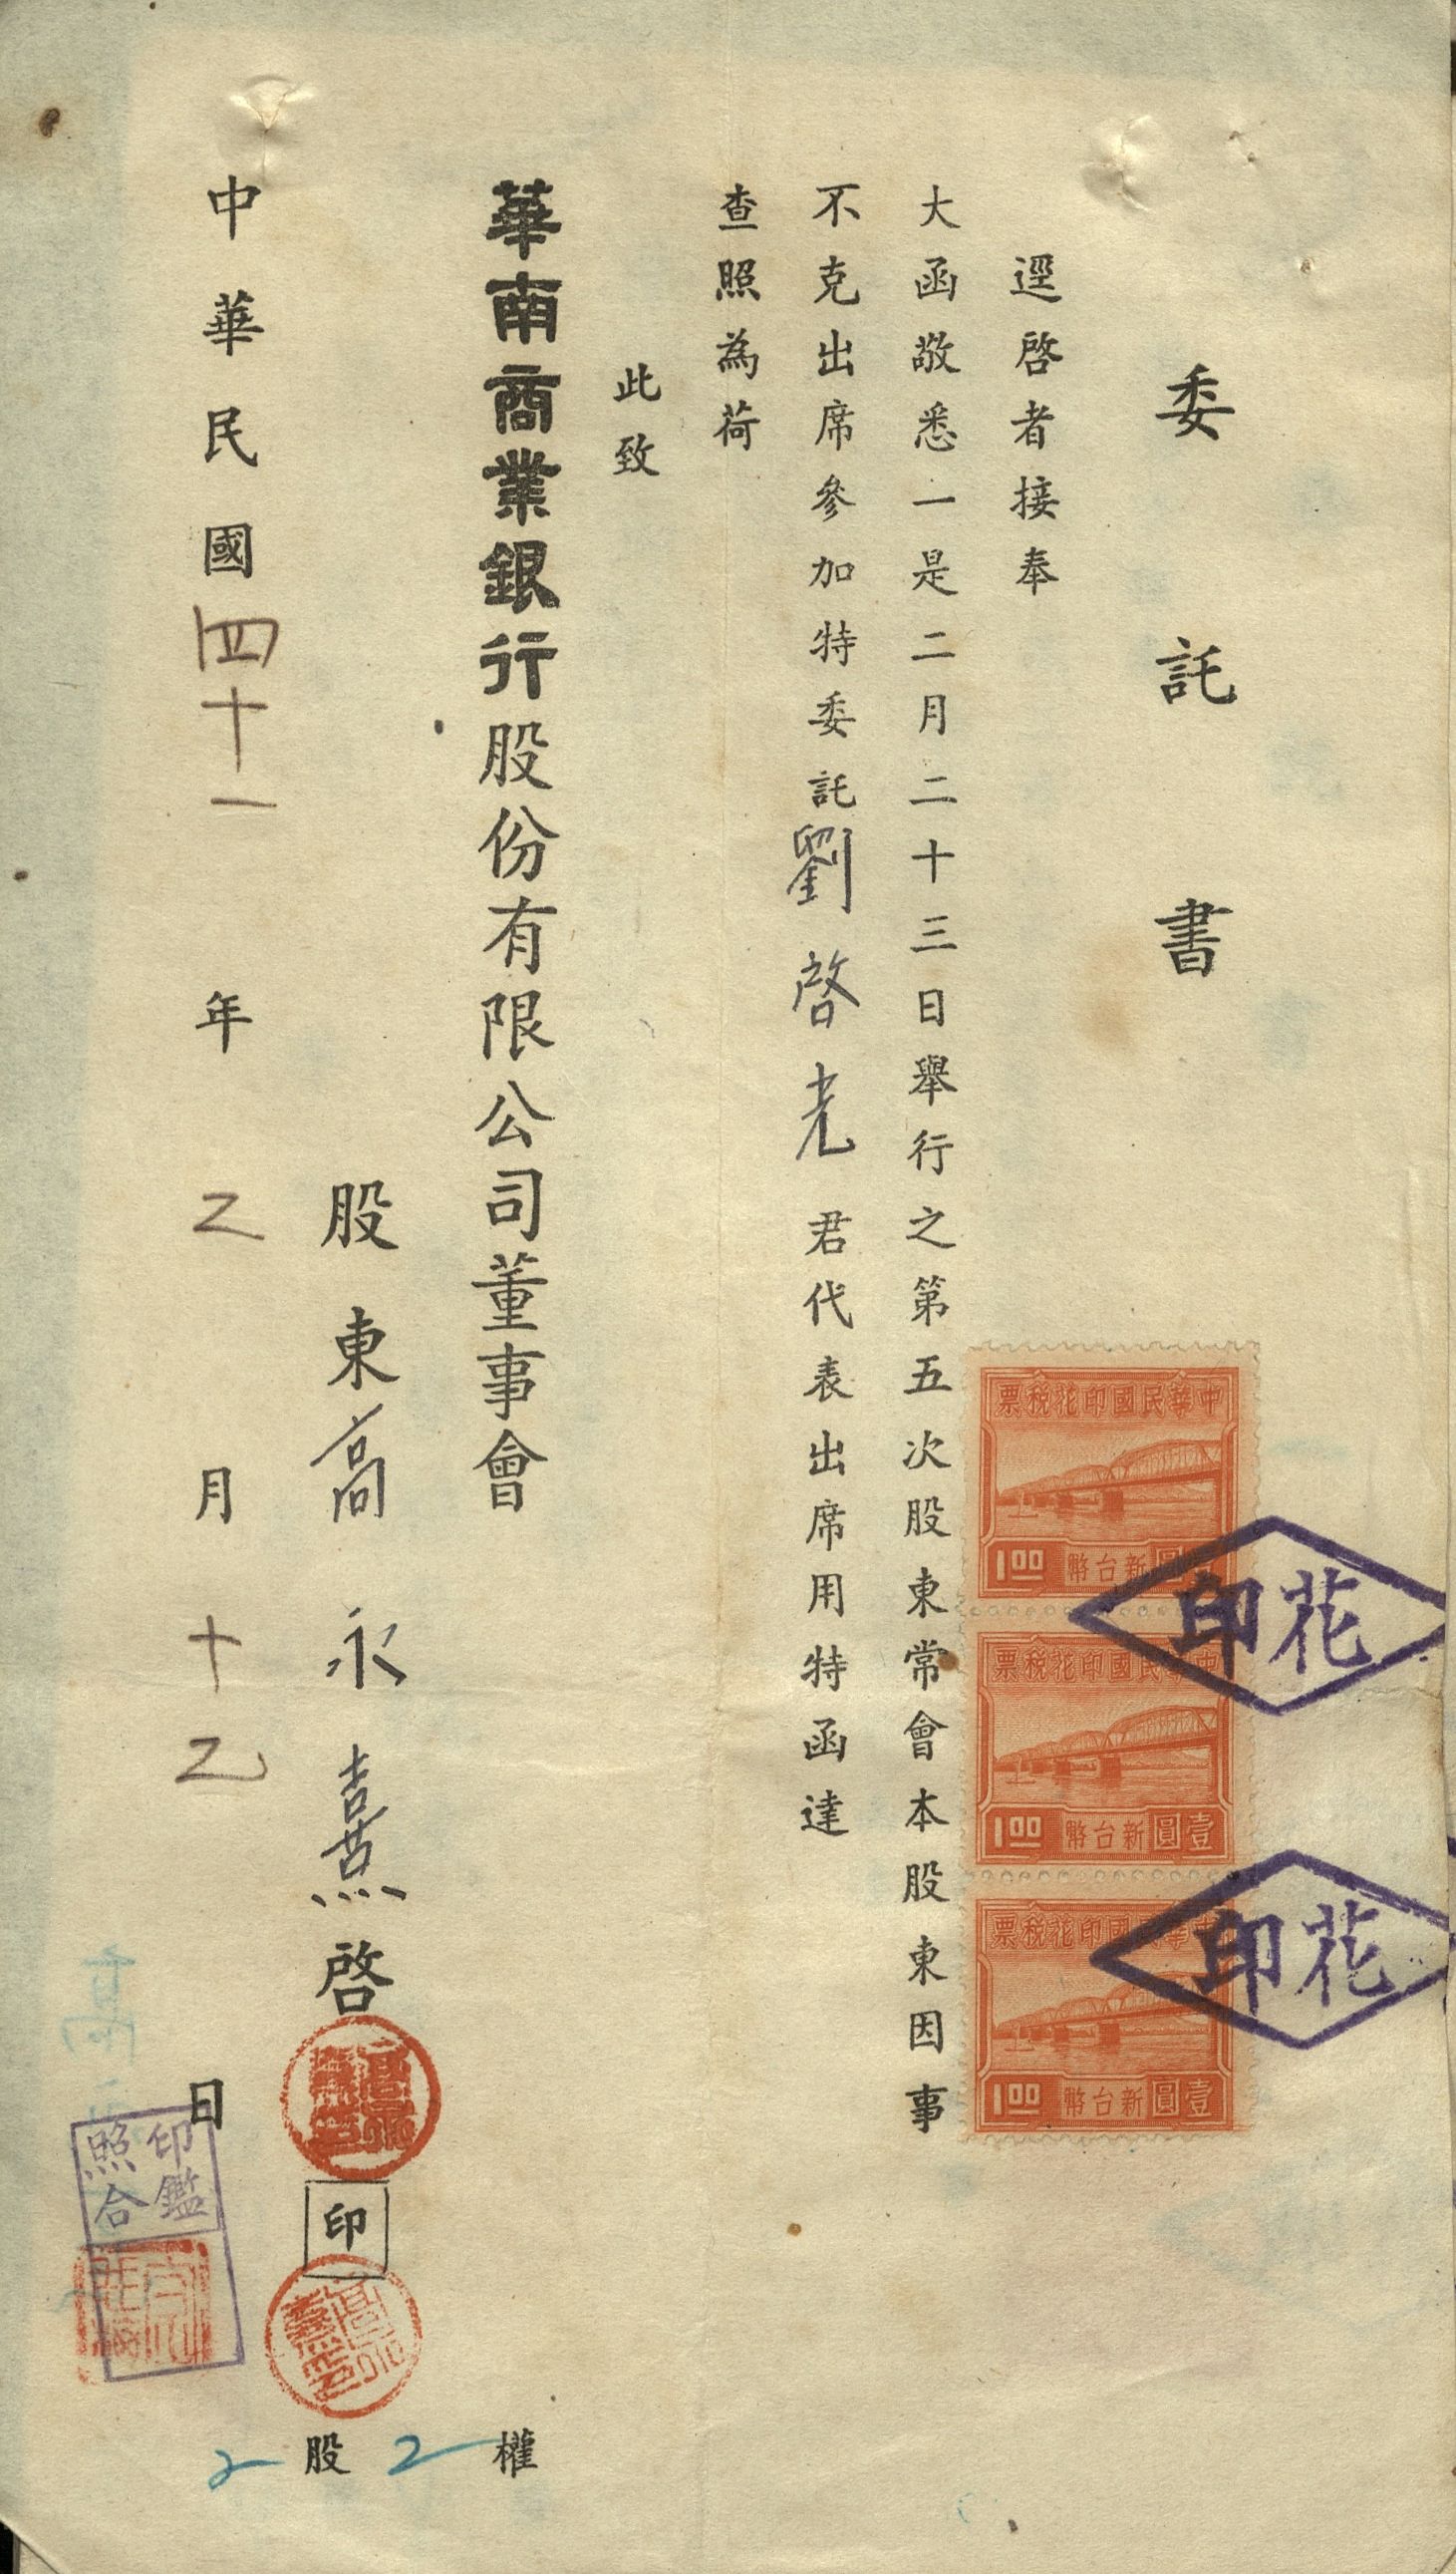 委託書
逕啓者接奉
大函敬悉一是二月二十三日舉行之第五次股東常會本股東因事
不克出席參加特委託劉啓光君代表出席用特函達
查照為荷
此致
華南商業銀行股份有限公司董事會
股東高永熹啓
印
中華民國四十一年乙月十乙日
2股2權
中華民國印花稅票
1.00 新台幣
中華民國印花稅票
1.00 新台幣壹圓
中華民國印花稅票
1.00 新台幣壹圓
花印
花印
印鑑
照合